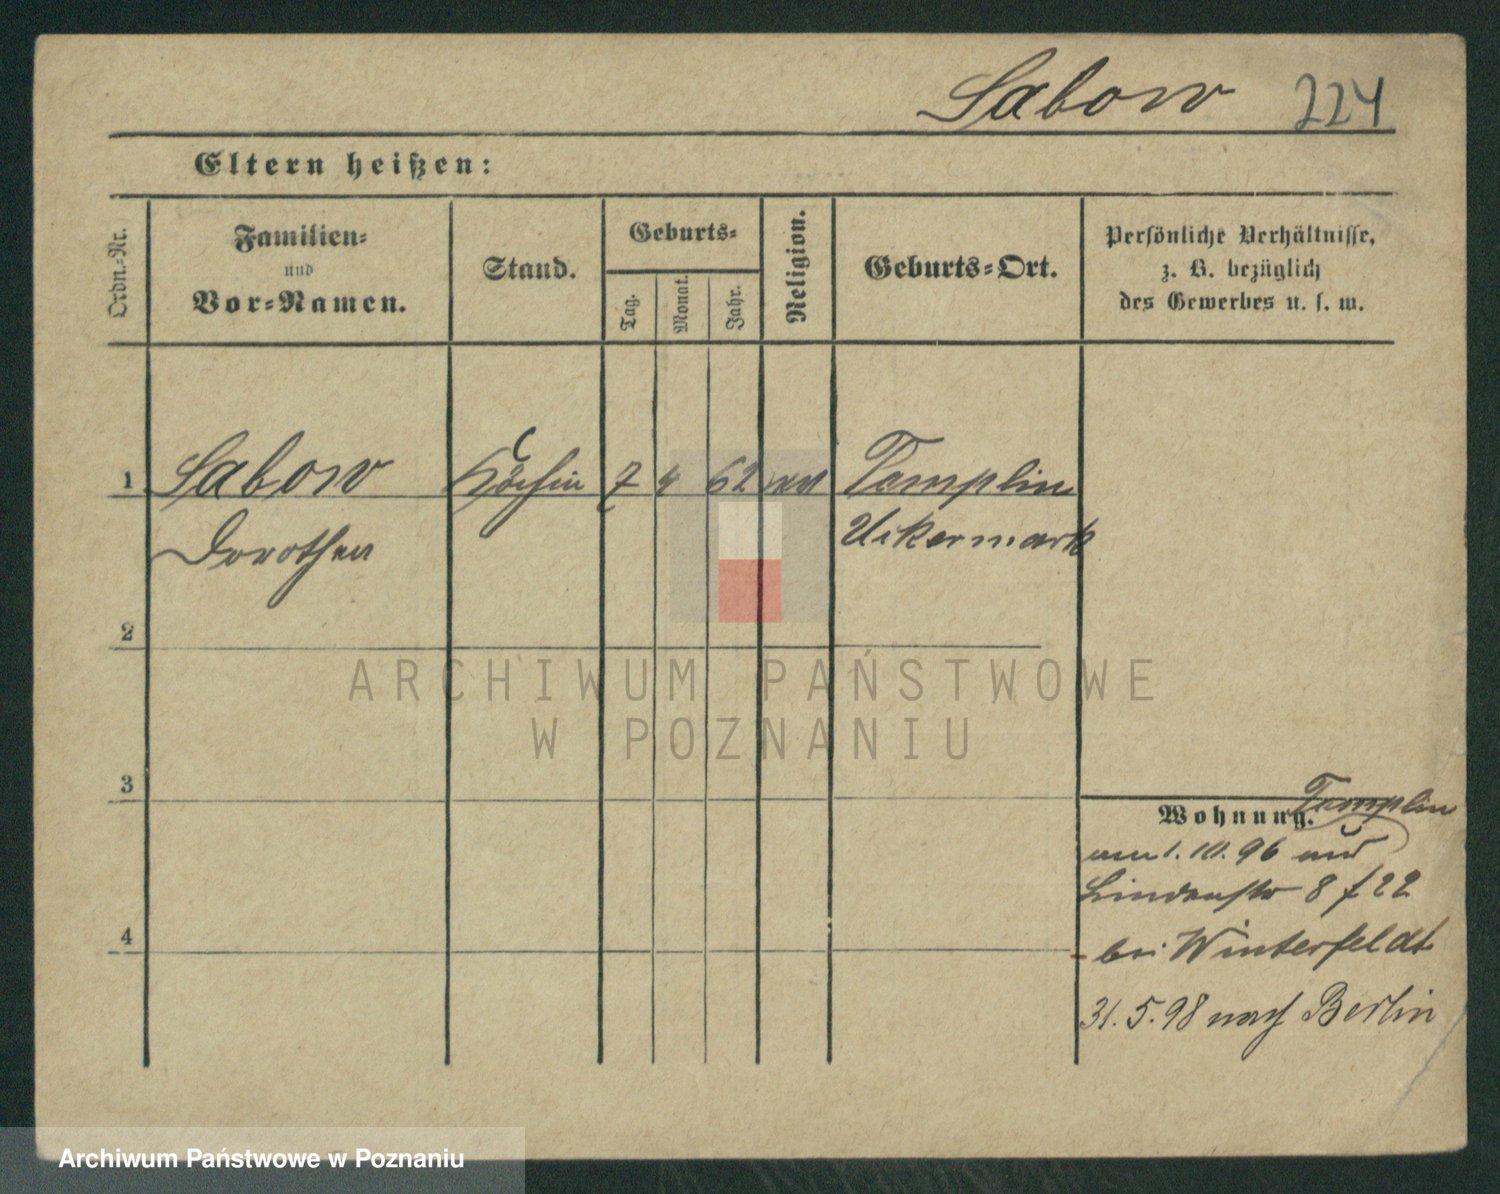 Sabow 224
Eltern heißen:
Ordn.-Nr.
Familien-
und
Vor-Namen.
Stand.
Geburts-
Tag.
Monat.
Jahr.
Religion.
Geburts-Ort.
Persönliche Verhältnisse,
z. B. bezüglich
des Gewerbes u. s. w.
1 Sabow Köchin 7 4 62 Templin
Dorothea Uckermark
2
ARCHIWUM PAŃSTWOWE
W POZNANIU
3
Wohnung. Templin
am 1. 10. 96 aus
Lindenstr 8 f 22
4
bei Winterfeldt
31. 5. 98 nach Berlin
Archiwum Państwowe w Poznaniu